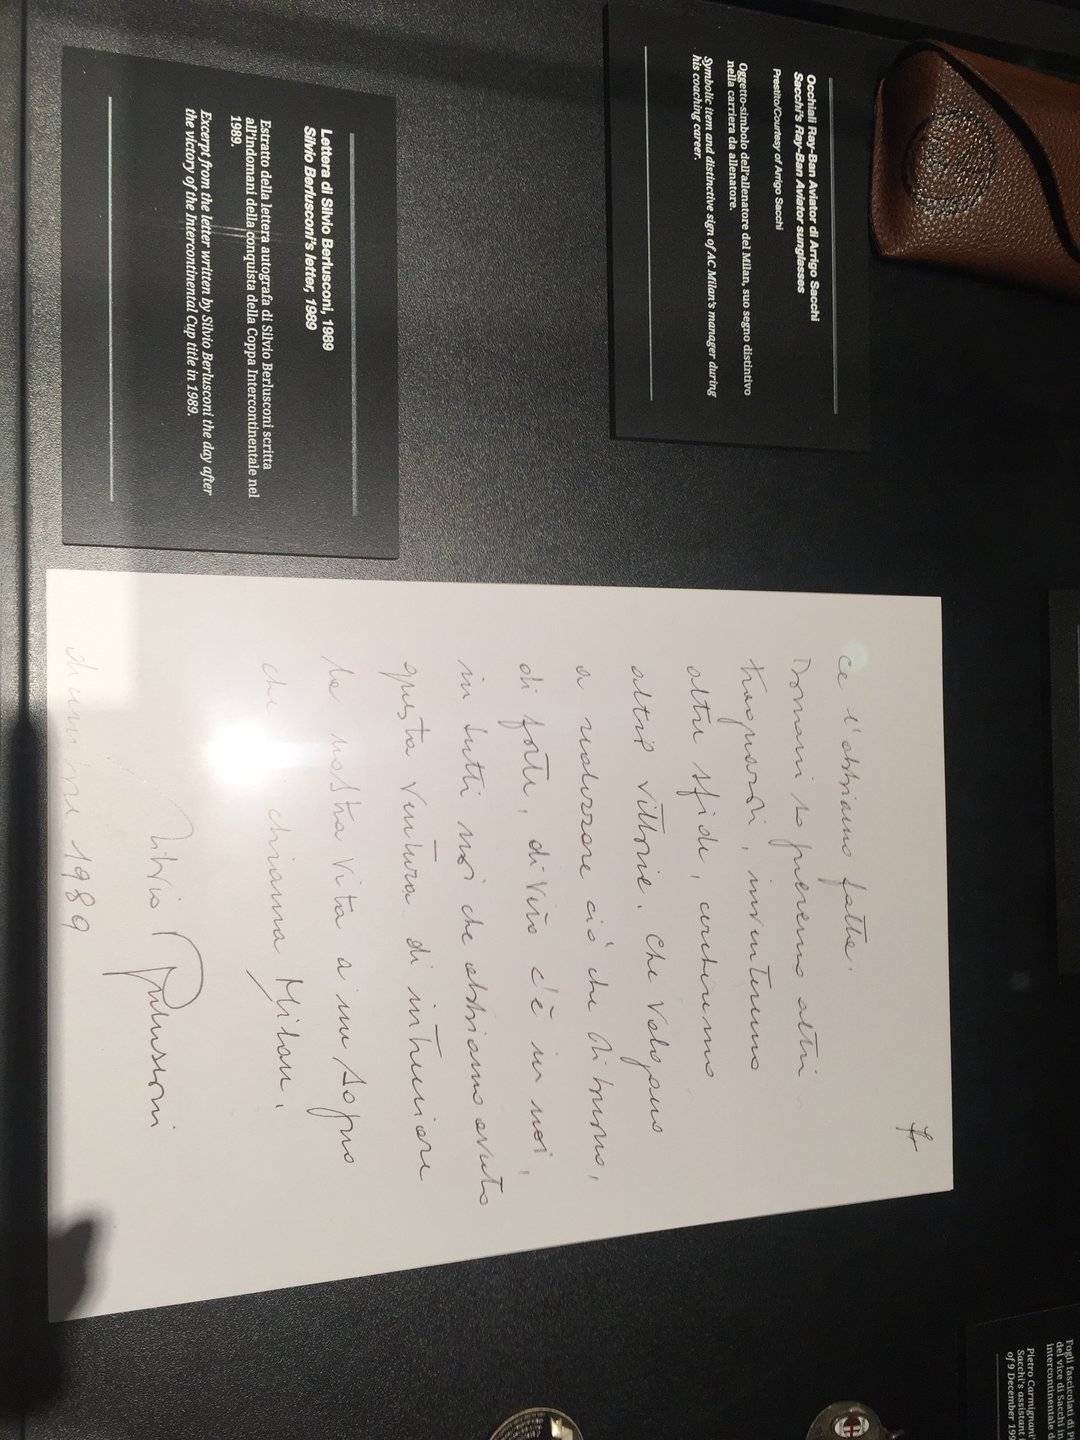 Occhiali Ray-Ban Aviator di Arrigo Sacchi
Sacchi's Ray-Ban Aviator sunglasses
Prestito/Courtesy of Arrigo Sacchi
Oggetto-simbolo dell'allenatore del Milan, suo segno distintivo
nella carriera da allenatore.
Symbolic item and distinctive sign of AC Milan's manager during
his coaching career.
Lettera di Silvio Berlusconi, 1989
Silvio Berlusconi's letter, 1989
Estratto della lettera autografa di Silvio Berlusconi scritta
all'indomani della conquista della Coppa Intercontinentale nel
1989.
Excerpt from the letter written by Silvio Berlusconi the day after
the victory of the Intercontinental Cup title in 1989.
ce l'abbiamo fatta.
Domani sogneremo altri
traguardi, inventeremo
altre sfide, cercheremo
altre vittorie. Che valgano
a realizzare ciò che di buono,
di forte, di vero c'è in noi,
in tutti noi che abbiamo avuto
questa ventura di intrecciare
la nostra vita a un sogno
che chiama Milan.
Silvio Berlusconi
dicembre 1989
Fogli fascicolati di
del vice di Sacchi in
intercontinentale
Pietro Carmignani'
Sacchi's assistant
of 9 December